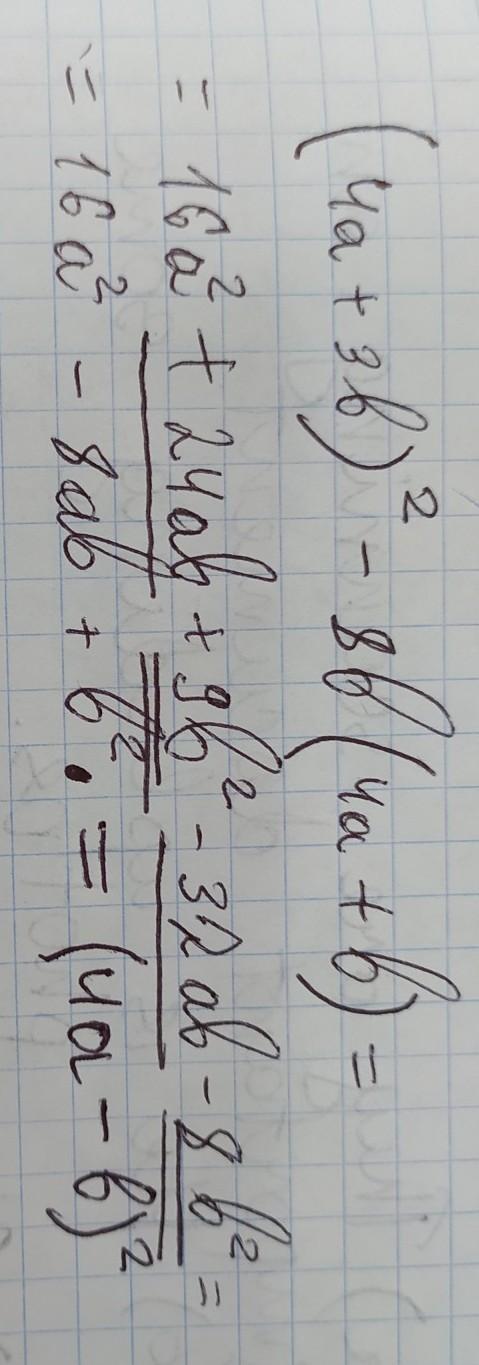 (4a + 3b)² - 8b(4a + b) =
= 16a² + 24ab + 9b² - 32ab - 8b² =
= 16a² - 8ab + b². = (4a - b)²